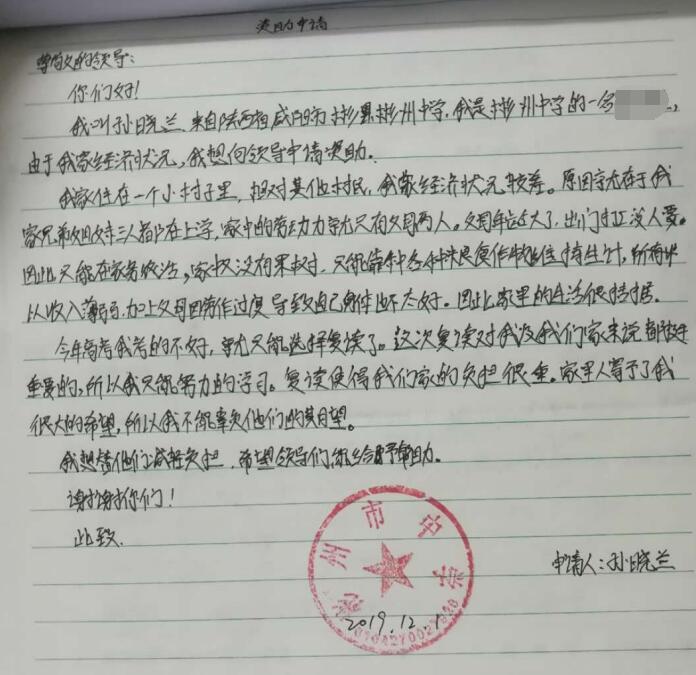 资助申请
尊敬的领导:
你们好!
我叫孙晓兰 来自陕西省咸阳市彬县彬州中学,我是彬州中学的一名
由于我家经济状况,我想向领导申请资助。
我家住在一个小村子里,相对其他村民,我家经济状况较差。原因就在于我
家兄弟姐妹三人都在上学,家中的劳动力就只有父母两人。父母年迈大了,出门打工没人要。
因此只能在家务农活,家中没有果树,只能靠种各种粮食作物维持生计,所有
以收入薄弱,加上父母因劳作过度导致自己身体也不太好。因此家里的生活很拮据。
今年高考我考的不好,就只能选择复读了。这次复读对我及我们家来说都是
重要的,所以我只能努力的学习。复读使得我们家的负担很重。家里人寄予了我
很大的希望,所以我不能辜负他们的期望。
我想替他们减轻负担,希望领导们能给予帮助。
谢谢你们!
此致.
申请人:孙晓兰
州市中学
2019.12.1